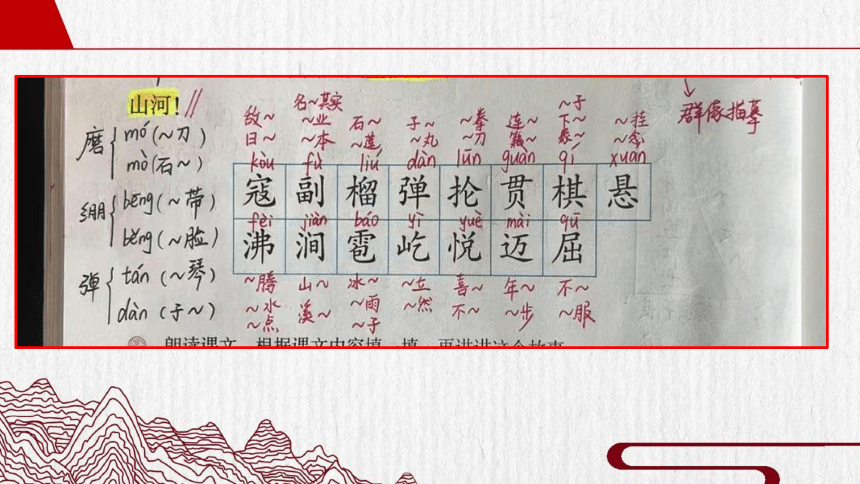 山河!
群像描摹
磨 mó(~刀)
mò(石~)
绷 bēng(~带)
běng(~脸)
弹 tán(~琴)
dàn(子~)
名~其实 ~子
敌~ ~业 石~ 子~ ~拳 连~ 下~ ~挂
日~ ~本 ~莲 ~丸 ~刀 籍~ 象~ ~念
kòu fù liú dàn lūn guàn qí xuán
寇 副 榴 弹 抡 贯 棋 悬
fèi jiàn báo yì yuè mài qū
沸 涧 雹 屹 悦 迈 屈
~腾 山~ 冰~ ~立 喜~ 年~ 不~
~水 溪~ ~雨 ~然 不~ ~步 ~服
~点 ~子
朗读课文,根据课文内容填一填,再讲讲这个故事